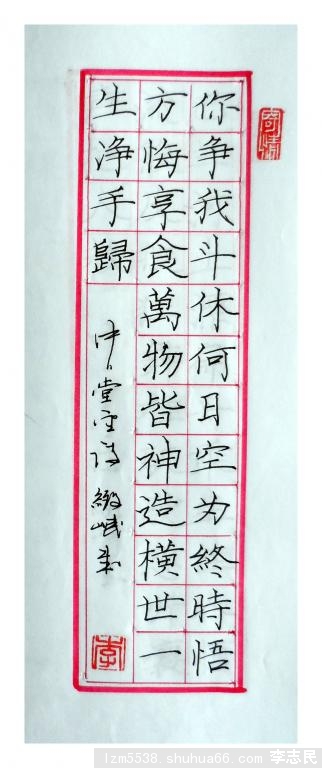 你争我斗休何日空为終時悟
方悔享食萬物皆神造横世一
生净手歸
李
lzm5538.shuhua66.com 李志民